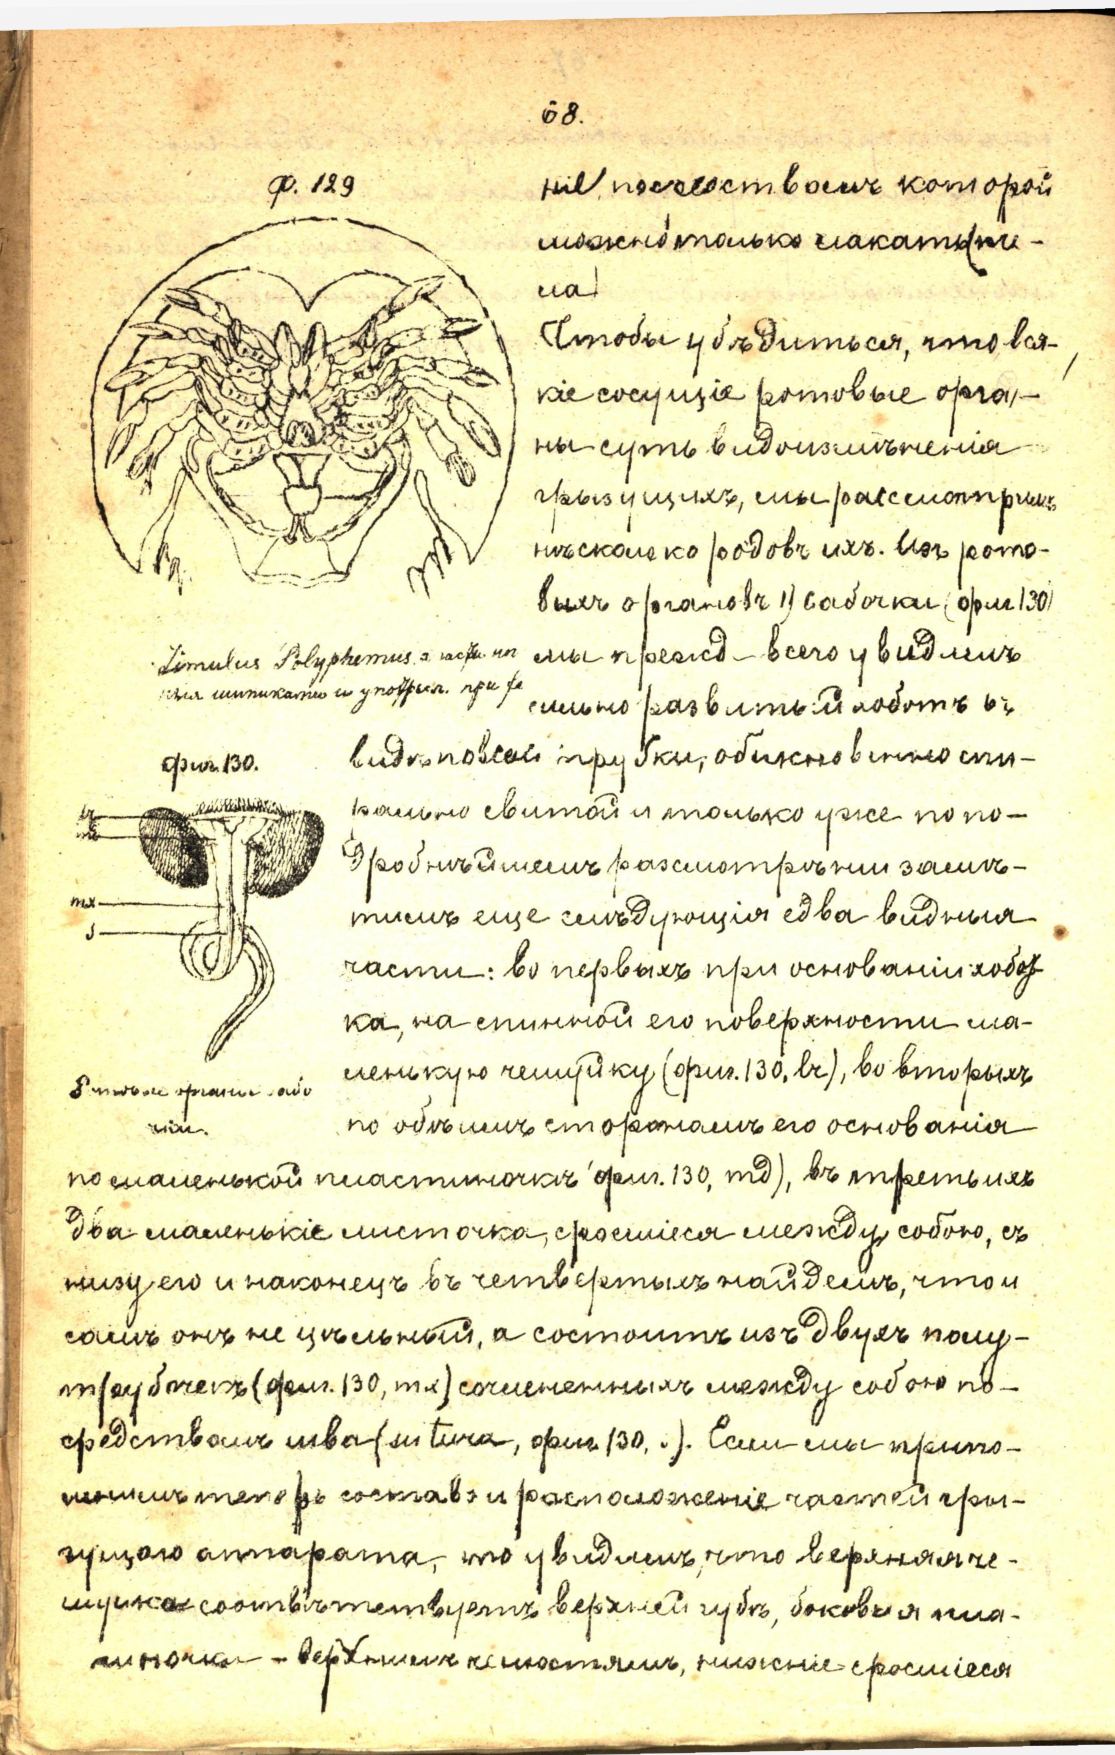 68.
ф. 129
ніе, посредствомъ которой
можно только лакать (пче-
ла)
Чтобы убѣдиться, что вся-
кіе сосущіе ротовые орга-
ны суть видоизмѣненія
грызущихъ, мы разсмотримъ
нѣсколько родовъ ихъ. Изъ рото-
выхъ органовъ 1) бабочки (фиг 130)
мы прежд всего увидимъ
сильно развитый хоботъ въ
Limulus Polyphemus
фиг. 130.
видѣ полой трубки, обыкновенно спи-
рально свитой и только уже по по-
дробнѣйшемъ разсмотрѣніи замѣ-
тимъ еще слѣдующія едва видныя
части: во первыхъ при основаніи хобот
ка, на спинной его поверхности ма-
ленькую чешуйку (фиг. 130, lr), во вторыхъ
по обѣимъ сторонамъ его основанія
lr
mx
s
Ротовые органы бабо
чки.
по маленькой пластиночкѣ (фиг. 130, md), въ третьихъ
два маленькіе листочка, сросшіеся между собою, съ
низу его и наконецъ въ четвертыхъ найдемъ, что и
самъ онъ не цѣльный, а состоитъ изъ двухъ полу-
трубочекъ (фиг. 130, mx) сочлененныхъ между собою по-
средствомъ шва (sutura, фиг. 130, s). Если мы припо-
мнимъ теперь составъ и расположеніе частей гры-
зущаго аппарата, то увидимъ, что верхняя че-
шуйка соотвѣтствуетъ верхней губѣ, боковыя пла-
тиночки - верхнимъ челюстямъ, нижніе сросшіеся